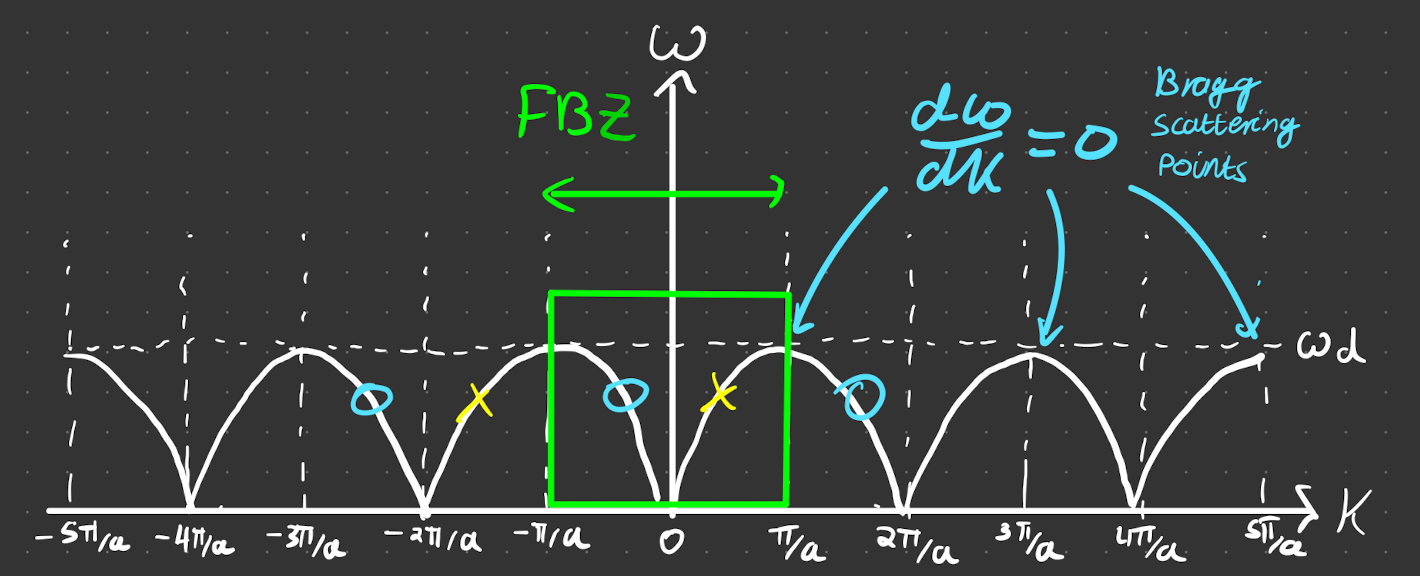 ω
FBZ
dω
dK
= 0
Bragg
scattering
points
ωd
K
-5π/a -4π/a -3π/a -2π/a -π/a 0 π/a 2π/a 3π/a 4π/a 5π/a